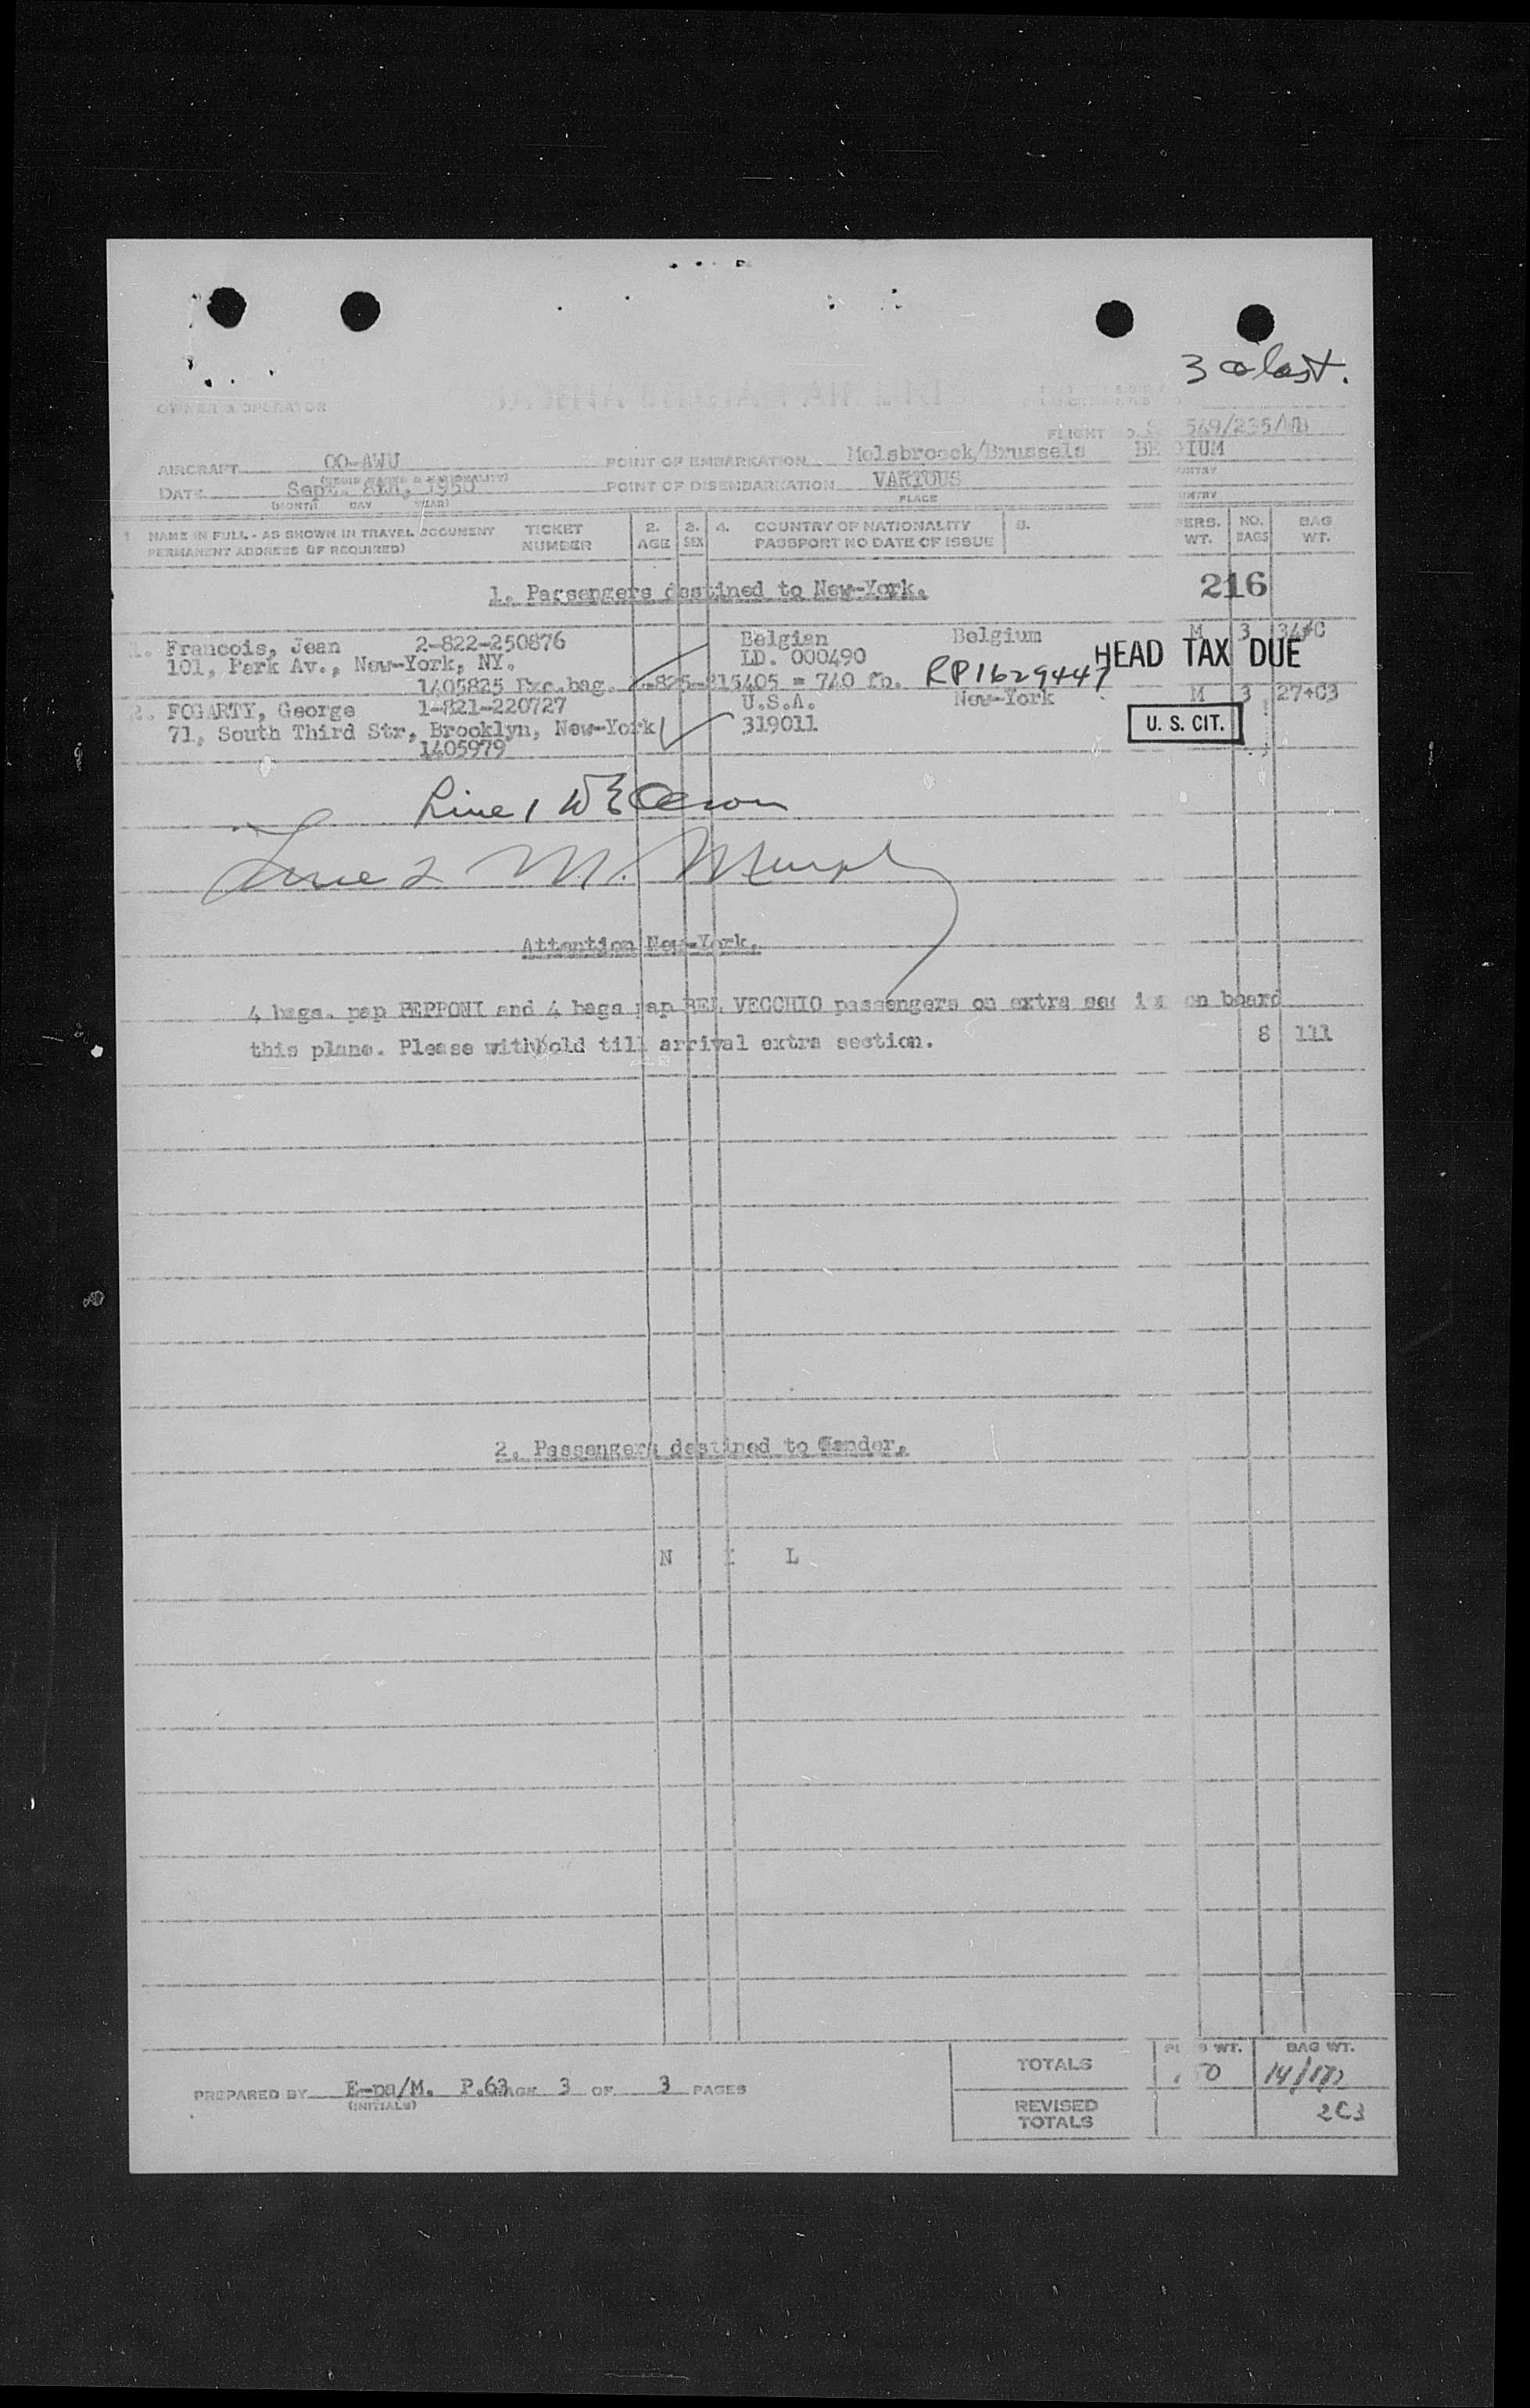 3 & last.
OWNER & OPERATOR SABENA BELGIAN AIR LINES
FLIGHT 549/235/WB
AIRCRAFT OO-AWU POINT OF EMBARKATION Melsbroeck/Brussels BELGIUM
(REGIS MARKS & NATIONALITY)
DATE Sept. 8th, 1950 POINT OF DISEMBARKATION VARIOUS
(MONTH DAY YEAR) PLACE
1. NAME IN FULL - AS SHOWN IN TRAVEL DOCUMENT TICKET 2. 3. 4. COUNTRY OF NATIONALITY 5. PERS. NO. BAG
PERMANENT ADDRESS (IF REQUIRED) NUMBER AGE SEX PASSPORT NO DATE OF ISSUE WT. BAGS WT.
1. Passengers destined to New-York. 216
1. Francois, Jean 2-822-250876 Belgian Belgium M 3 34+C
101, Park Av., New-York, NY. LD. 000490 HEAD TAX DUE
1405825 Exc.bag. -825-215405 = 740 fb. RP1629447
2. FOGARTY, George 1-821-220727 U.S.A. New-York M 3 27+C3
71, South Third Str, Brooklyn, New-York 319011 U. S. CIT.
1405979
Line 1
Line 2 M. Murphy
Attention New-York.
4 bags. pap PEPPONI and 4 bags pap DEL VECCHIO passengers on extra section on board
this plane. Please withhold till arrival extra section. 8 111
2. Passengers destined to Gander.
N I L
TOTALS PERS WT. BAG WT.
150 14/172
PREPARED BY E-pa/M. P.63 PAGE 3 OF 3 PAGES
(INITIALS)
REVISED TOTALS 2C3